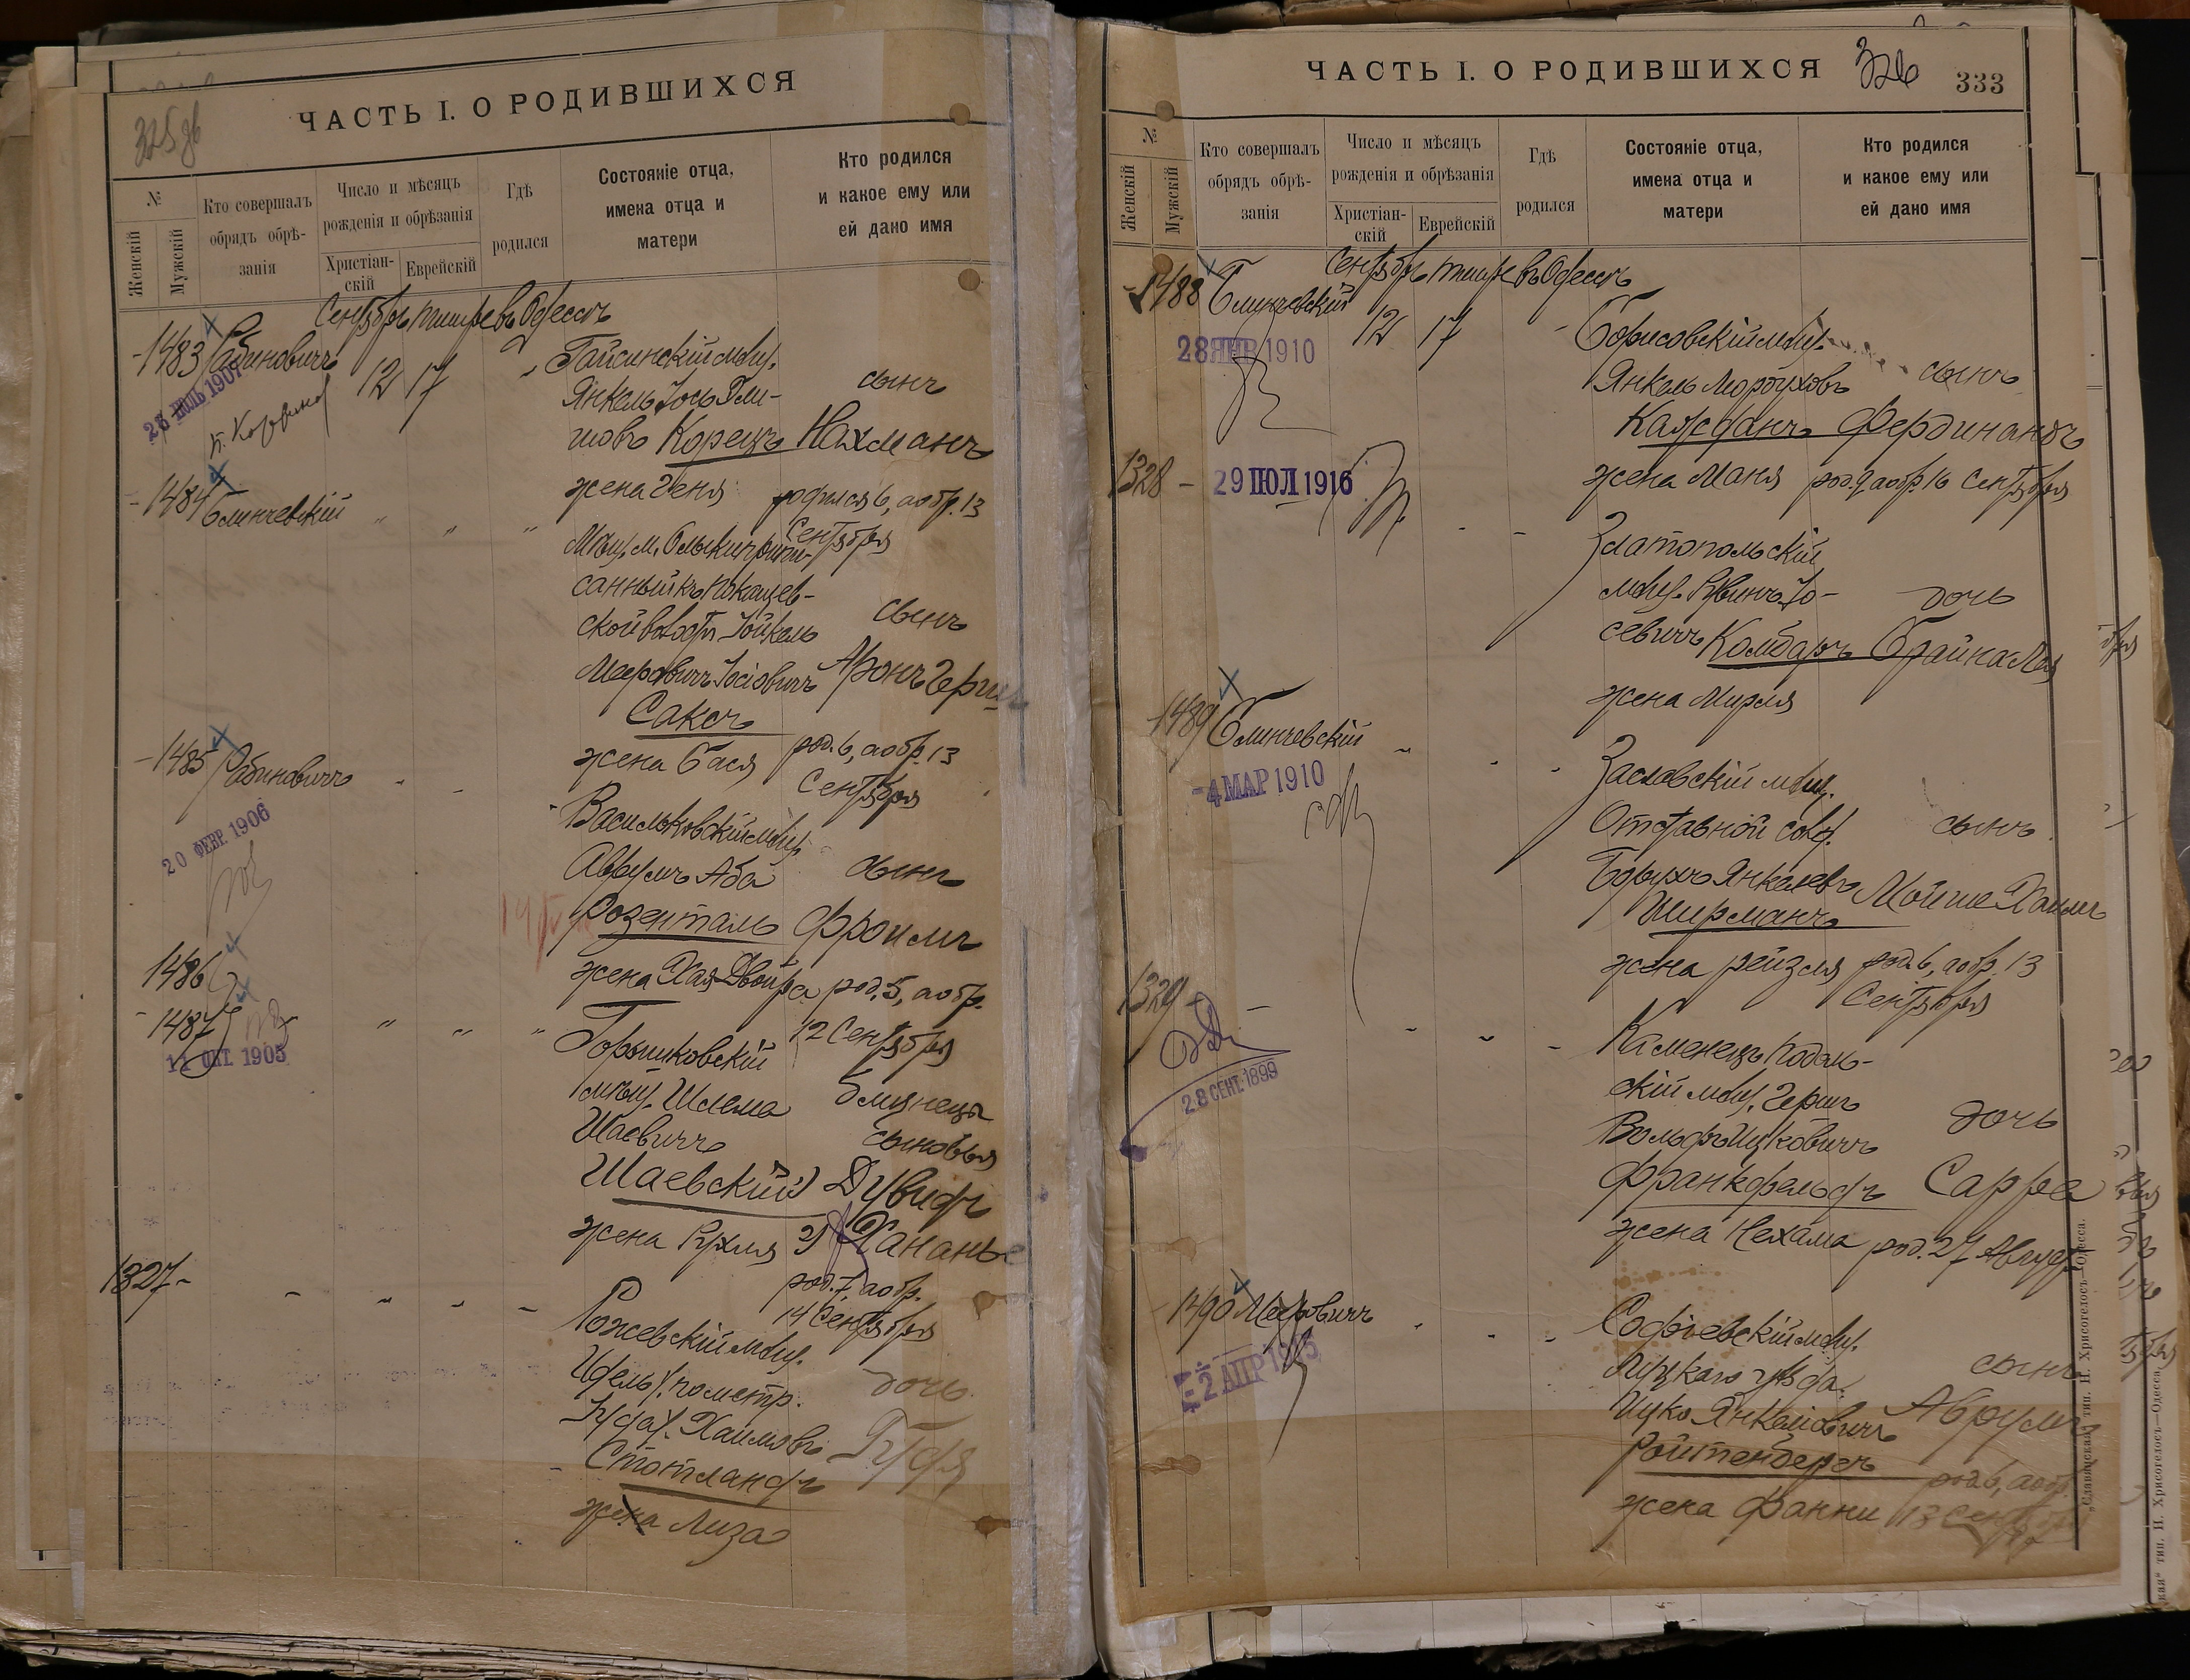 325 об
ЧАСТЬ I. О РОДИВШИХСЯ
№
Женскій
Мужскій
Кто совершалъ
обрядъ обрѣ-
занія
Число и мѣсяцъ
рожденія и обрѣзанія
Христіан-
скій
Еврейскій
Гдѣ
родился
Состояніе отца,
имена отца и
матери
Кто родился
и какое ему или
ей дано имя
Сентябрь тишре въ Одессѣ
1483 Рабиновичъ 12 17 Гайсинскій мѣщ.
Янкель Іось
шовъ Корецъ
жена Геня
сынъ
Нахманъ
родился 6, а обр. 13
Сентября
1484 Блинчевскій " " "
Мѣщ. м. Олыки припи-
санный къ
ской волости Іойкель
Мееровичъ Іосіовичъ
Саксъ
жена Бася
сынъ
Аронъ Герш
род. 6, а обр. 13
Сентября
1485 Рабиновичъ
20 ФЕВР. 1906
Васильковскій мѣщ.
Аврумъ Аба
Розенталь
жена Хая-Двойра
сынъ
Фроимъ
род. 5, а обр.
12 Сентября
1486
1487 " " "
11 ОКТ. 1905
Горышковскій
мѣщ. Шлема
Шаевичъ
Шаевскій
жена Рухля
близнецы
сыновья
1) Дувидъ
2) Хананье
род. 7, а обр.
14 Сентября
1327 -
Рожевскій мѣщ.
Идель (по метр.
Іуда). Хаимовъ
Стотландъ
жена Лиза
дочь
ЧАСТЬ I. О РОДИВШИХСЯ
326
333
№
Женскій
Мужскій
Кто совершалъ
обрядъ обрѣ-
занія
Число и мѣсяцъ
рожденія и обрѣзанія
Христіан-
скій
Еврейскій
Гдѣ
родился
Состояніе отца,
имена отца и
матери
Кто родился
и какое ему или
ей дано имя
Сентябрь тишре въ Одессѣ
1488 Блинчевскій 12 17
28 ЯНВ 1910
Борисовскій мѣщ.
Янкель Мордуховъ
Каждан
жена Маня
сынъ
Фердинандъ
род. 9 а обр. 16 Сентября
1328 -
29 ІЮЛ 1916
Златопольскій
мѣщ. Рувинъ Іо-
севичъ Комбаръ
жена Мирля
дочь
Брайна Лея
1489 Блинчевскій
4 МАР 1910
Заславскій мѣщ.
Отставной солд.
Борухъ Янкелевъ
Ширманъ
жена Рейзля
сынъ
Мойше Хаимъ
род. 6, а обр. 13
Сентября
1329 -
28 СЕНТ. 1899
Каменецъ Подоль-
скій мѣщ. Герш
Вольфъ Ицковичъ
Франкфельдъ
жена Нехама
дочь
Сарра
род. 27 Августа
1490 Мееровичъ
Софіевскій мѣщ.
Луцкаго уѣзда
Ицко Янкеліовичъ
Ройтенбергъ
жена Фанни
сынъ
Аврумъ
род. 6, а обр.
13 Сентября
„Славянская“ тип. Н. Хрисогелосъ—Одесса.